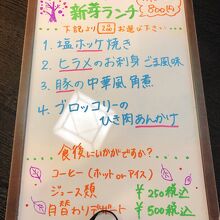 新芽ランチ 800円
下記より2品お選び下さい
1. 塩ホッケ焼き
2. ヒラメのお刺身ごま風味
3. 豚の中華風角煮
4. ブロッコリーの
ひき肉あんかけ
食後にいかがですか?
コーヒー(ホットorアイス)
ジュース類 ¥250税込
月替わりデザート ¥500税込